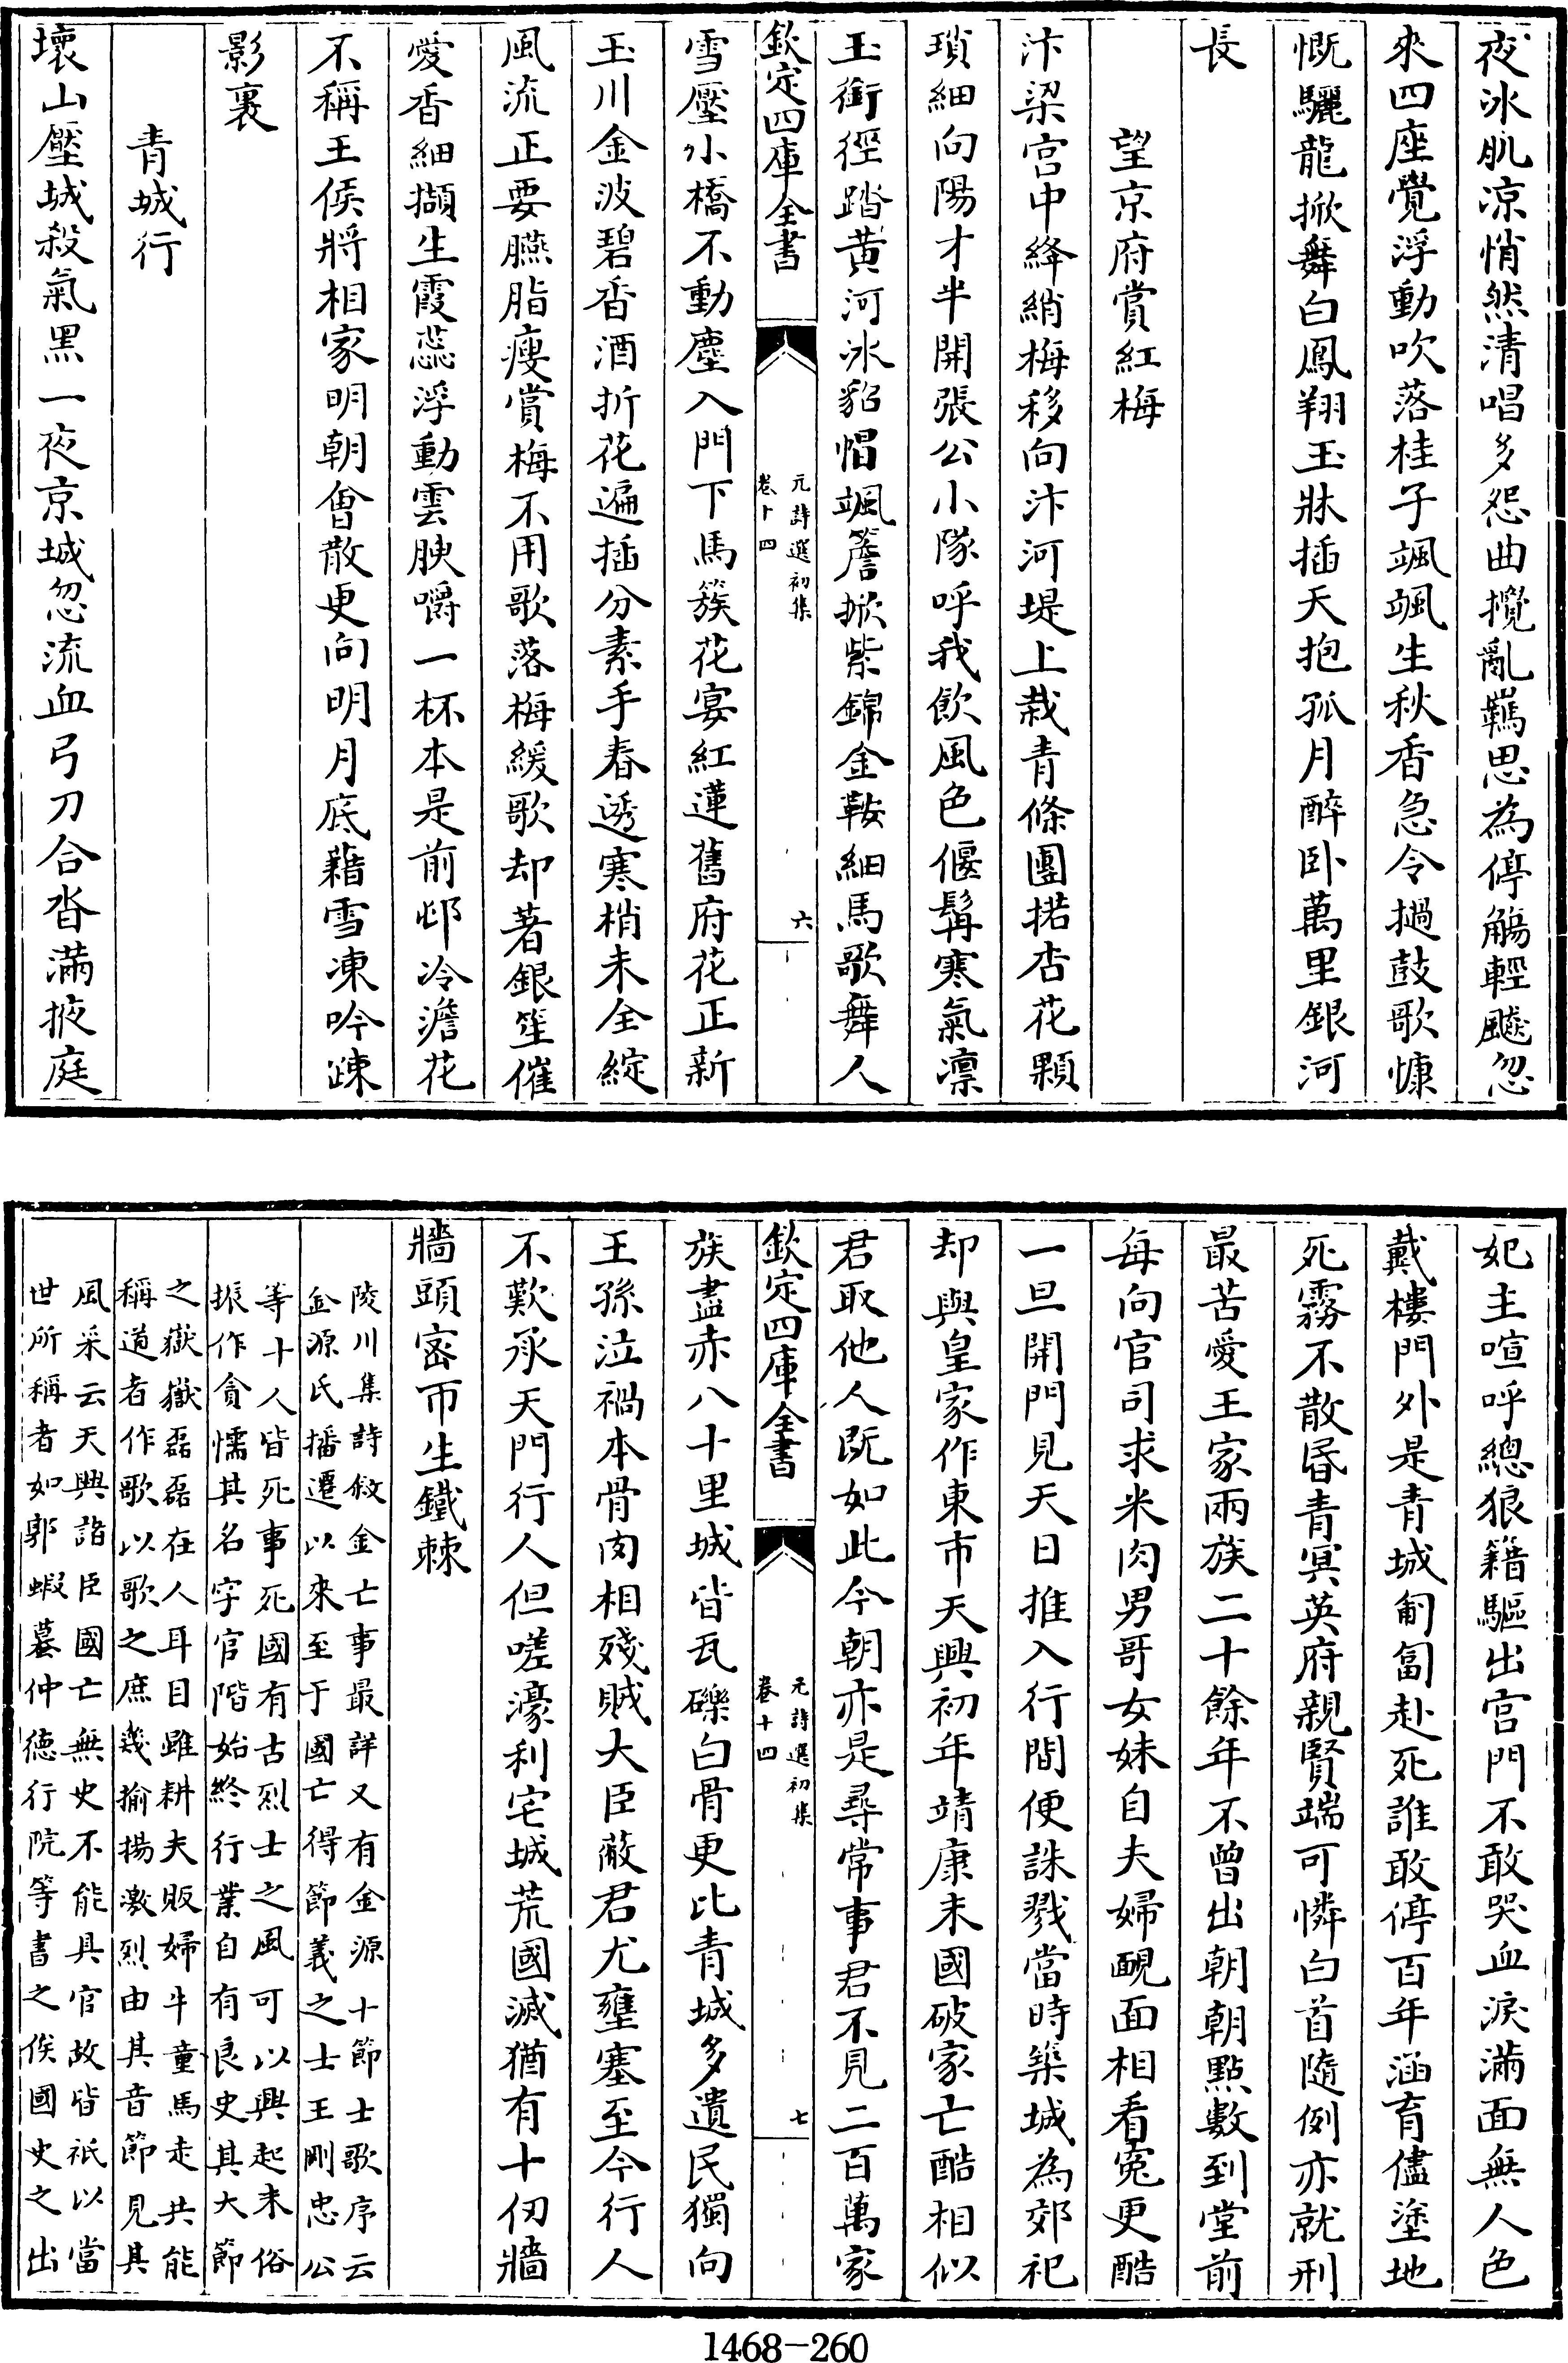 夜冰肌凉悄然清唱多怨曲攪亂羈思為停觴輕飈忽
來四座覺浮動吹落桂子颯颯生秋香急令撾鼓歌慷
慨驪龍掀舞白鳳翔玉牀插天抱孤月醉卧萬里銀河
長
望京府賞紅梅
汴梁宫中絳綃梅移向汴河堤上栽青條團掿杏花顆
瑣細向陽才半開張公小隊呼我飲風色偃髯寒氣凛
玉銜徑踏黄河冰貂帽颯簷掀紫錦金鞍細馬歌舞人
欽定四庫全書
元詩選初集
卷十四
六
雪壓小橋不動塵入門下馬簇花宴紅蓮舊府花正新
玉川金波碧香酒折花遍插分素手春透寒梢未全綻
風流正要臙脂瘦賞梅不用歌落梅緩歌却著銀笙催
愛香細擷生霞蕊浮動雲腴嚼一杯本是前邨冷澹花
不稱王侯將相家明朝會散更向明月底藉雪凍吟踈
影裏
青城行
壞山壓城殺氣黑一夜京城忽流血弓刀合沓滿掖庭
妃主喧呼總狼籍驅出宫門不敢哭血淚滿面無人色
戴樓門外是青城匍匐赴死誰敢停百年涵育儘塗地
死霧不散昬青冥英府親賢端可憐白首隨例亦就刑
最苦愛王家兩族二十餘年不曾出朝朝點數到堂前
每向官司求米肉男哥女妹自夫婦靦面相看寃更酷
一旦開門見天日推入行間便誅戮當時築城為郊祀
却與皇家作東市天興初年靖康末國破家亡酷相似
君取他人既如此今朝亦是尋常事君不見二百萬家
欽定四庫全書
元詩選初集
卷十四
七
族盡赤八十里城皆瓦礫白骨更比青城多遺民獨向
王孫泣禍本骨肉相殘賊大臣蔽君尤壅塞至今行人
不歎承天門行人但嗟濠利宅城荒國滅猶有十仞牆
牆頭密帀生鐵棘
陵川集詩叙金亡事最詳又有金源十節士歌序云
金源氏播遷以來至于國亡得節義之士王剛忠公
等十人皆死事死國有古烈士之風可以興起末俗
振作貪懦其名字官階始終行業自有良史其大節
之嶽嶽磊磊在人耳目雖耕夫販婦牛童馬走共能
稱道者作歌以歌之庶幾揄揚激烈由其音節見其
風采云天興諸臣國亡無史不能具官故皆祇以當
世所稱者如郭蝦蟇仲德行院等書之俟國史之出
1468-260